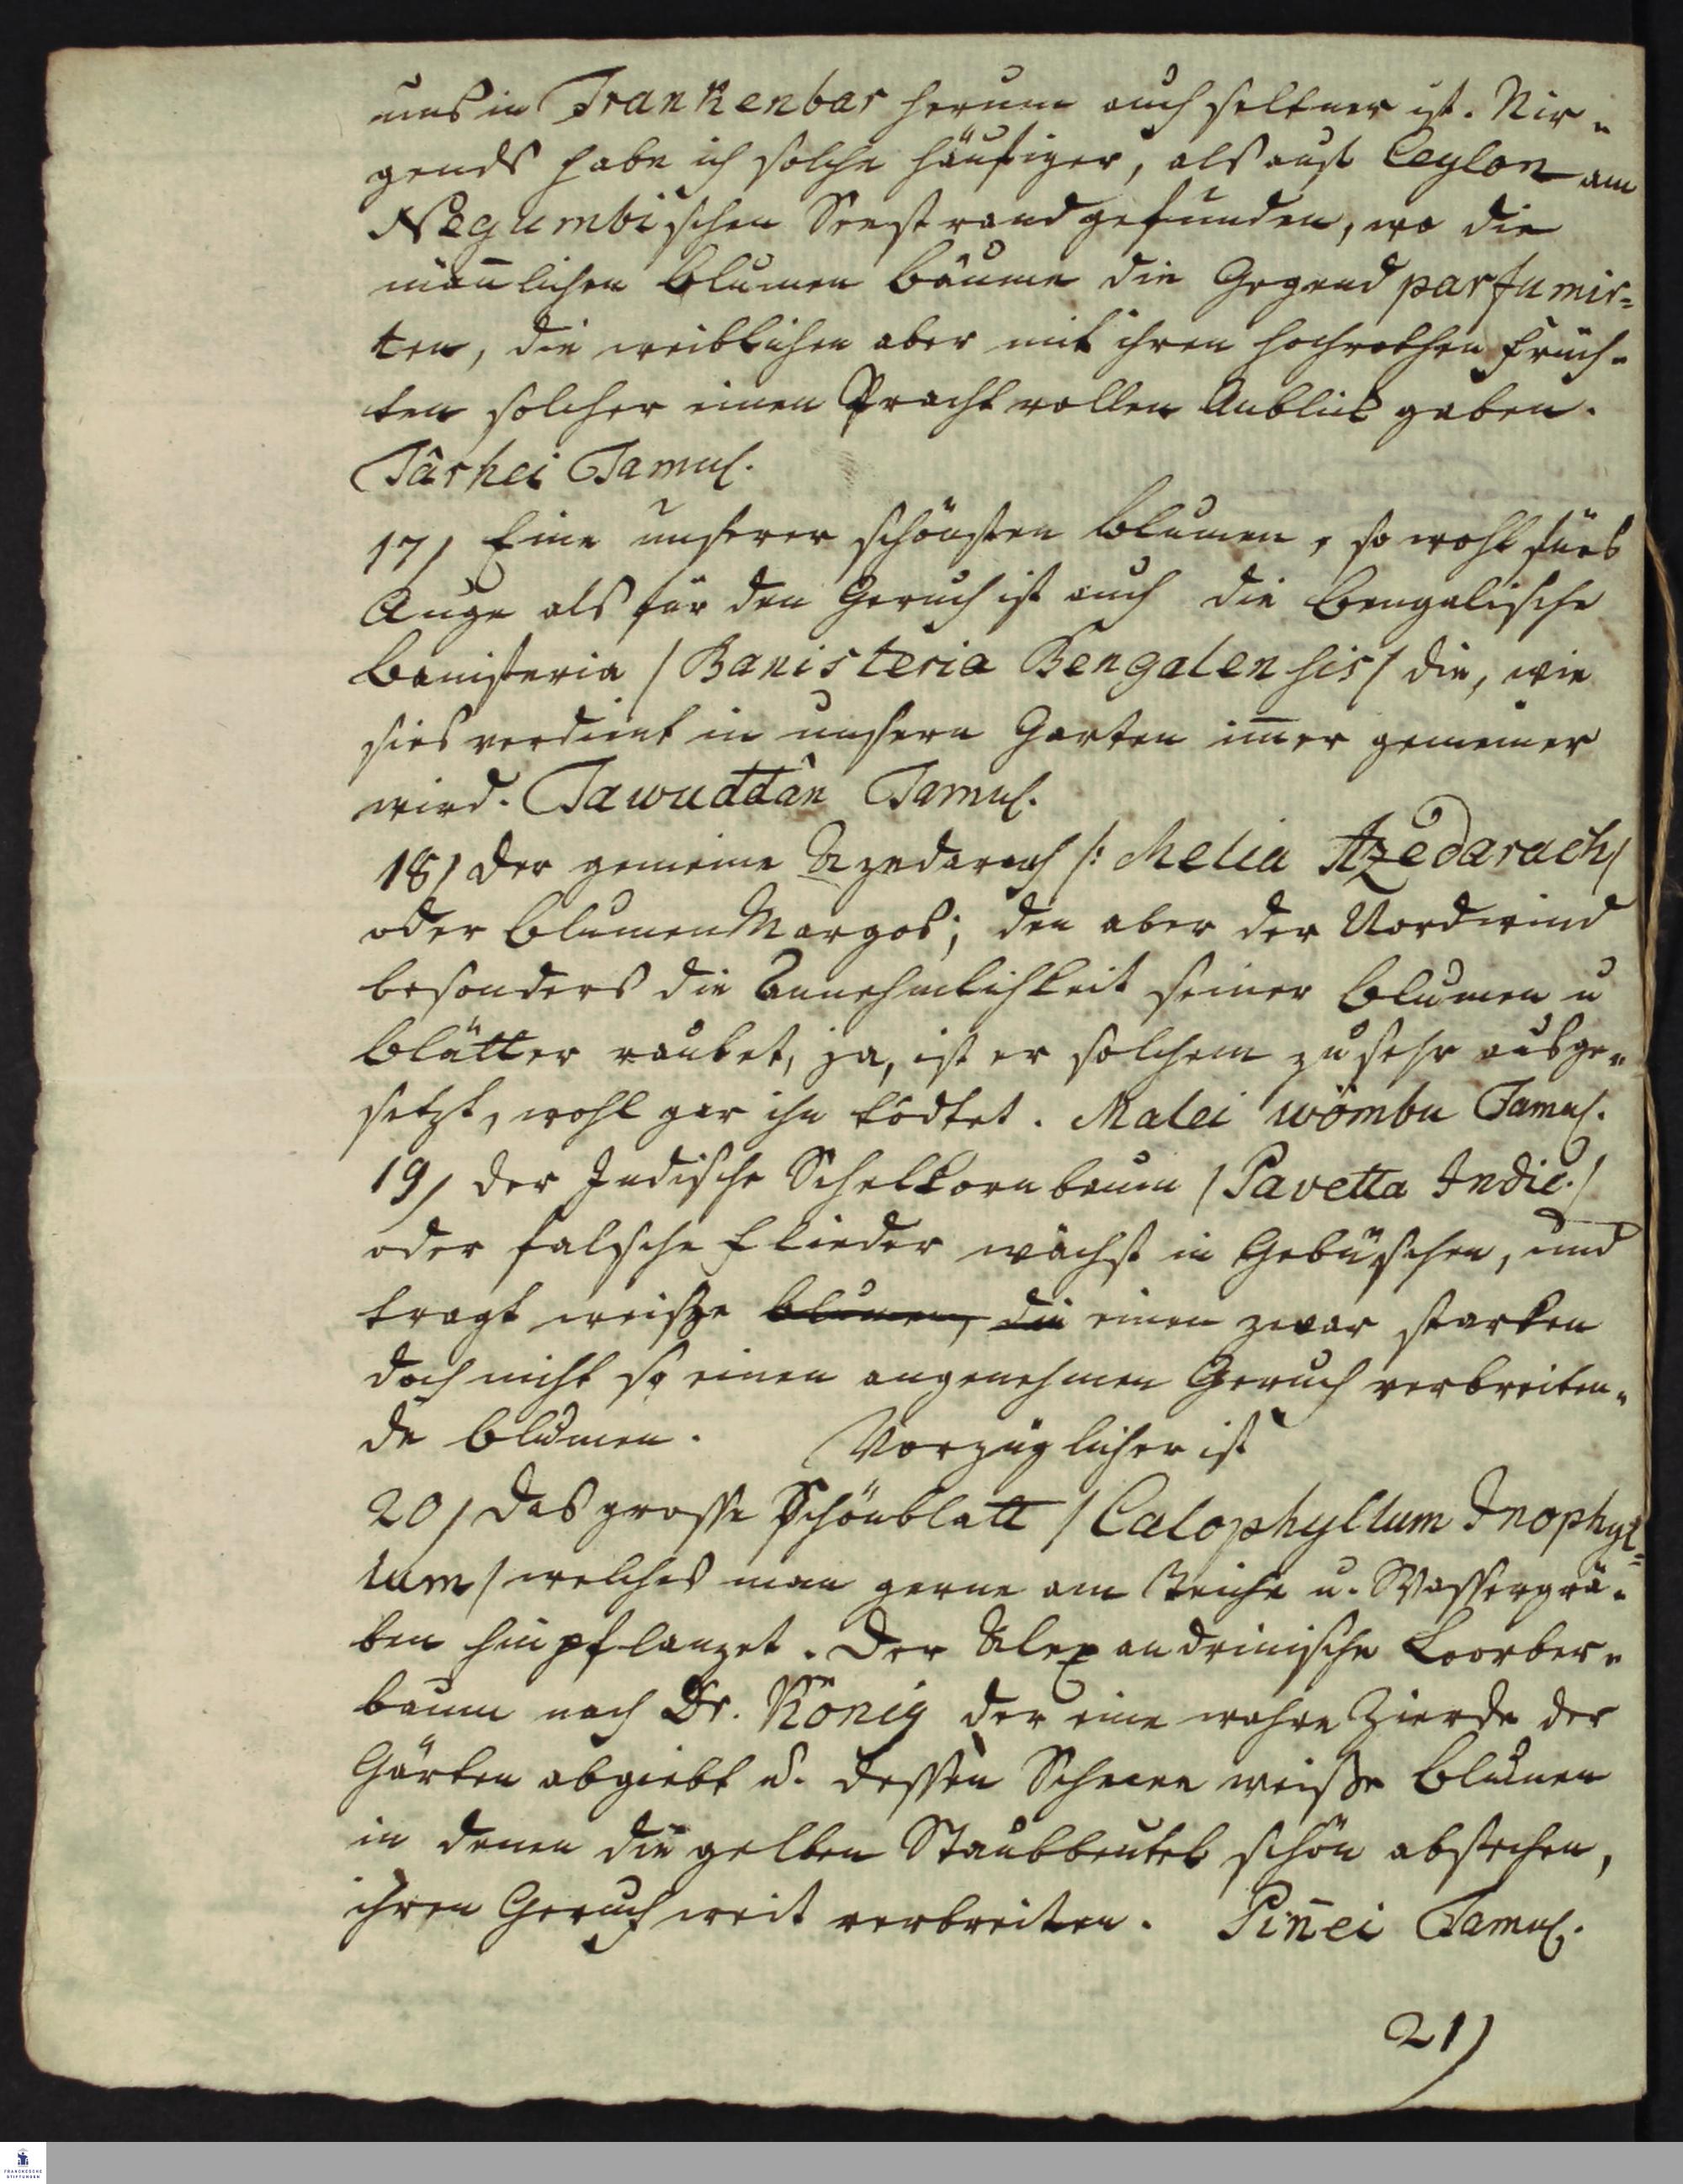 uns in Trankenbar herum auch seltner ist. Nir=
gends habe ich solche häufiger, als auf Ceylon am
Negumbischen Seestrand gefunden, wo die
mañlichen Blumen Bäume die Gegend parfumir=
ten, die weiblichen aber mit ihren hochrothen Früch=
ten solcher einen Pracht vollen Anblick gaben.
Târhei Tamul.
17/ Eine unserer schönsten Blumen, so wohl fürs
Auge als für den Geruch ist auch die Bengalische
Banisteria /Banisteria Bengalensis/ die, wie
sies verdient in unsern Garten im̄er gemeiner
wird. Tawuddân Tamul.
18/ Der gemeine Azedarach /: Melia Azedarach/
oder Blumen Margos; den aber der Nordwind
besonders die Annehmlichkeit seiner Blumen u
Blätter raubet, ja, ist er solchem zu sehr ausge=
setzt, wohl gar ihn tödtet. Malei wömbu Tamul.
19/ Der Indische Schelkornbaum /Pavetta Indic./
oder falsche Flieder wächst in Gebüschen, und
tragt weisse Blumen, die einen zwar starken
doch nicht so einen angenehmen Geruch verbreiten=
de Blumen. Vorzüglicher ist
20/ Das grosse Schönblatt /Calophyllum Inophyl=
lum/ welches man gerne am Teiche u. Wassergrä=
ben hinpflanzet. Der Alexandrinische Loorber=
baum nach Dr. König der eine wahre Zierde der
Gärten abgiebt u. dessen Schnee weiße Blumen
in denen die gelben Staubbeutel schön abstechen,
ihren Geruch weit verbreiten. Pin̄ei Tamul.
21)
FRANCKESCHE
STIFTUNGEN